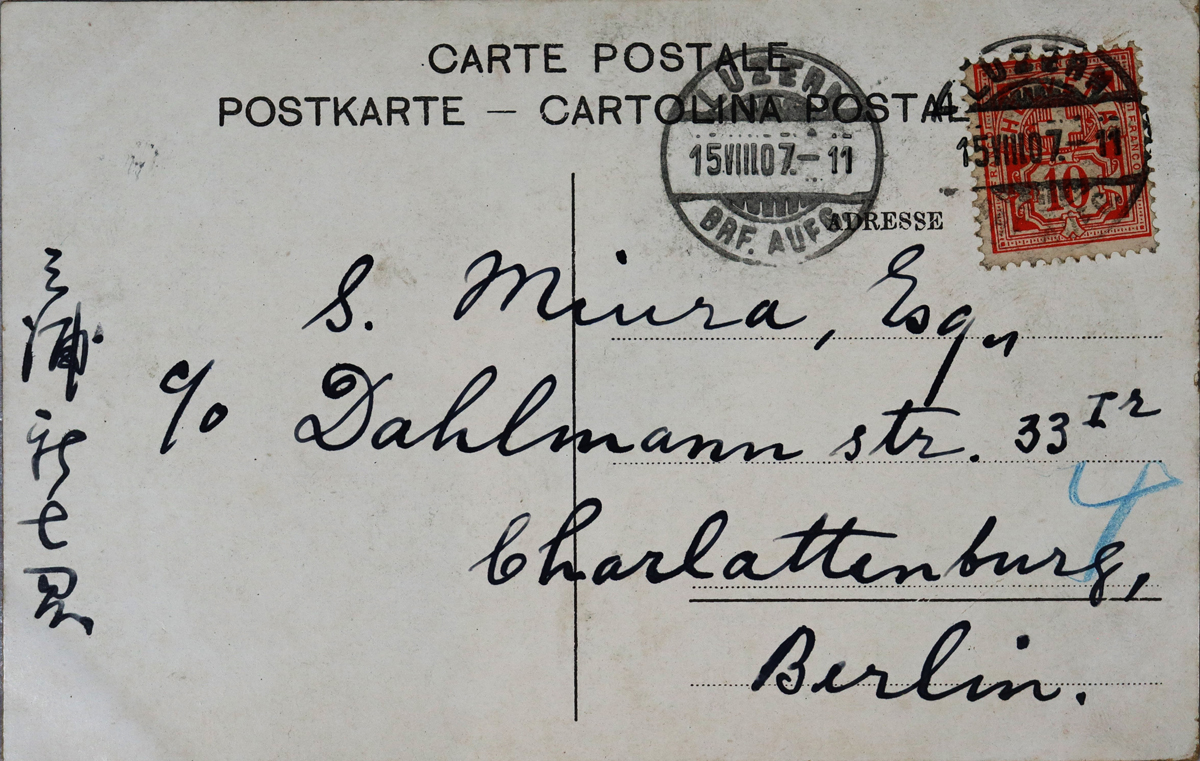 CARTE POSTALE
POSTKARTE — CARTOLINA POSTALE
LUZERN
15.VIII.07.–11
BRF. AUFG.
LUZERN
15.VIII.07.–11
FRANCO
10
ADRESSE
S. Miura, Esq.,
c/o Dahlmann str. 33 I r
Charlattenburg,
Berlin.
4
三浦新七君